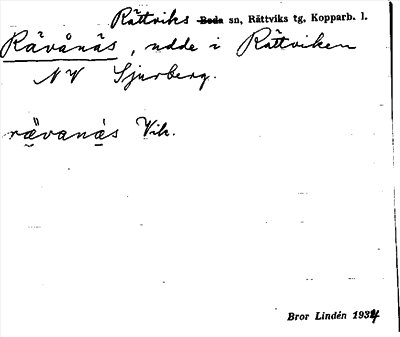 Rättviks Boda sn, Rättviks tg, Kopparb. l.
Rävånäs, udde i Rättviken
NV Sjurberg.
rävanäs Vik.
Bror Lindén 1934